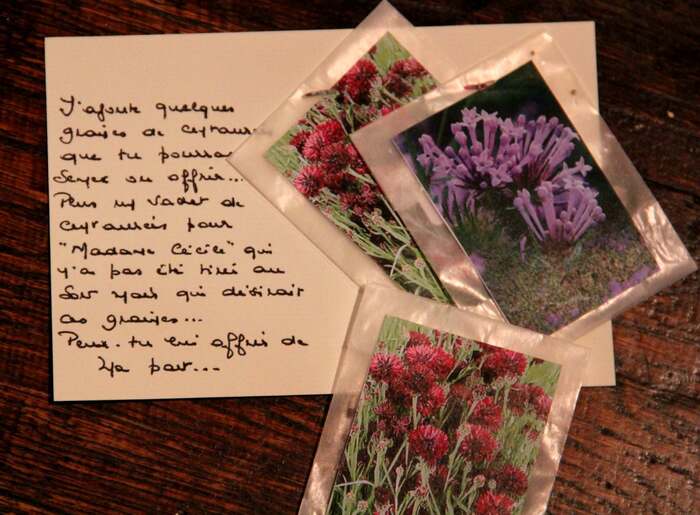 J'ajoute quelques
graines de Centaur
que tu pourras
Semer ou offrir...
Plus un sachet de
Centaurées pour
"Madame Cécile" qui
n'a pas été tiré au
Sort mais qui désirait
ces graines...
Peux-tu lui offrir de
Ma part...